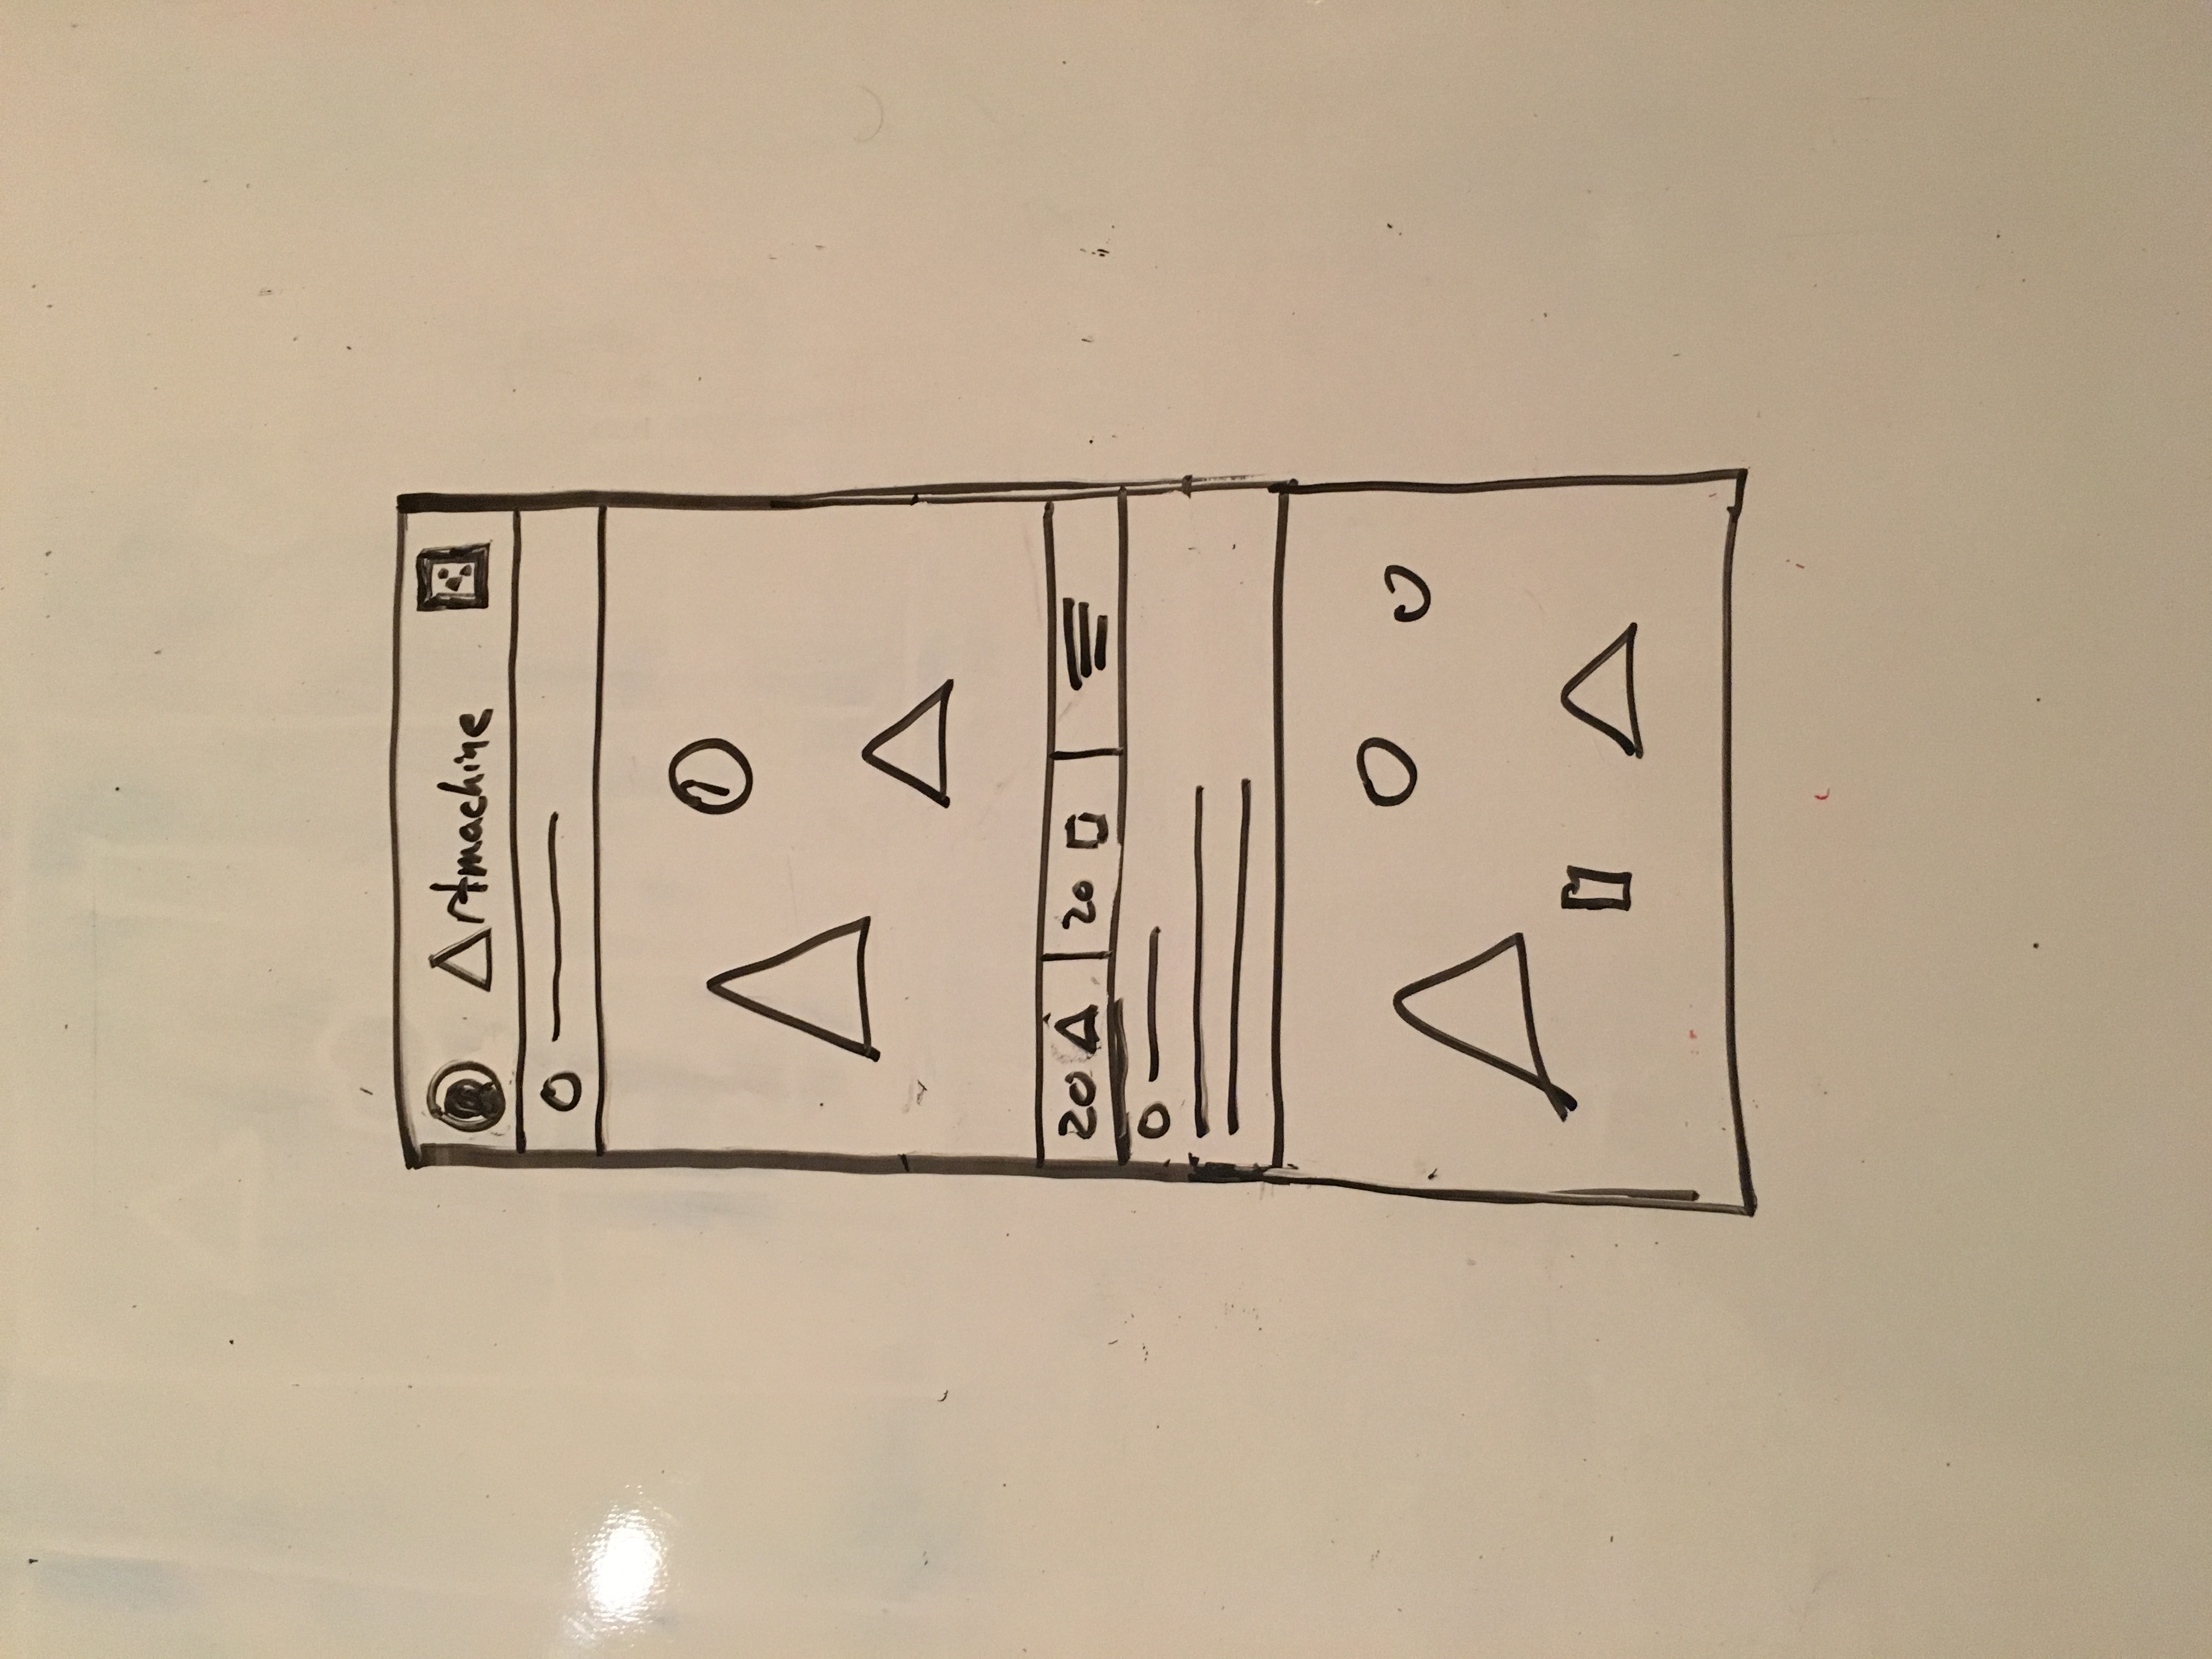 Artmachine
20 20